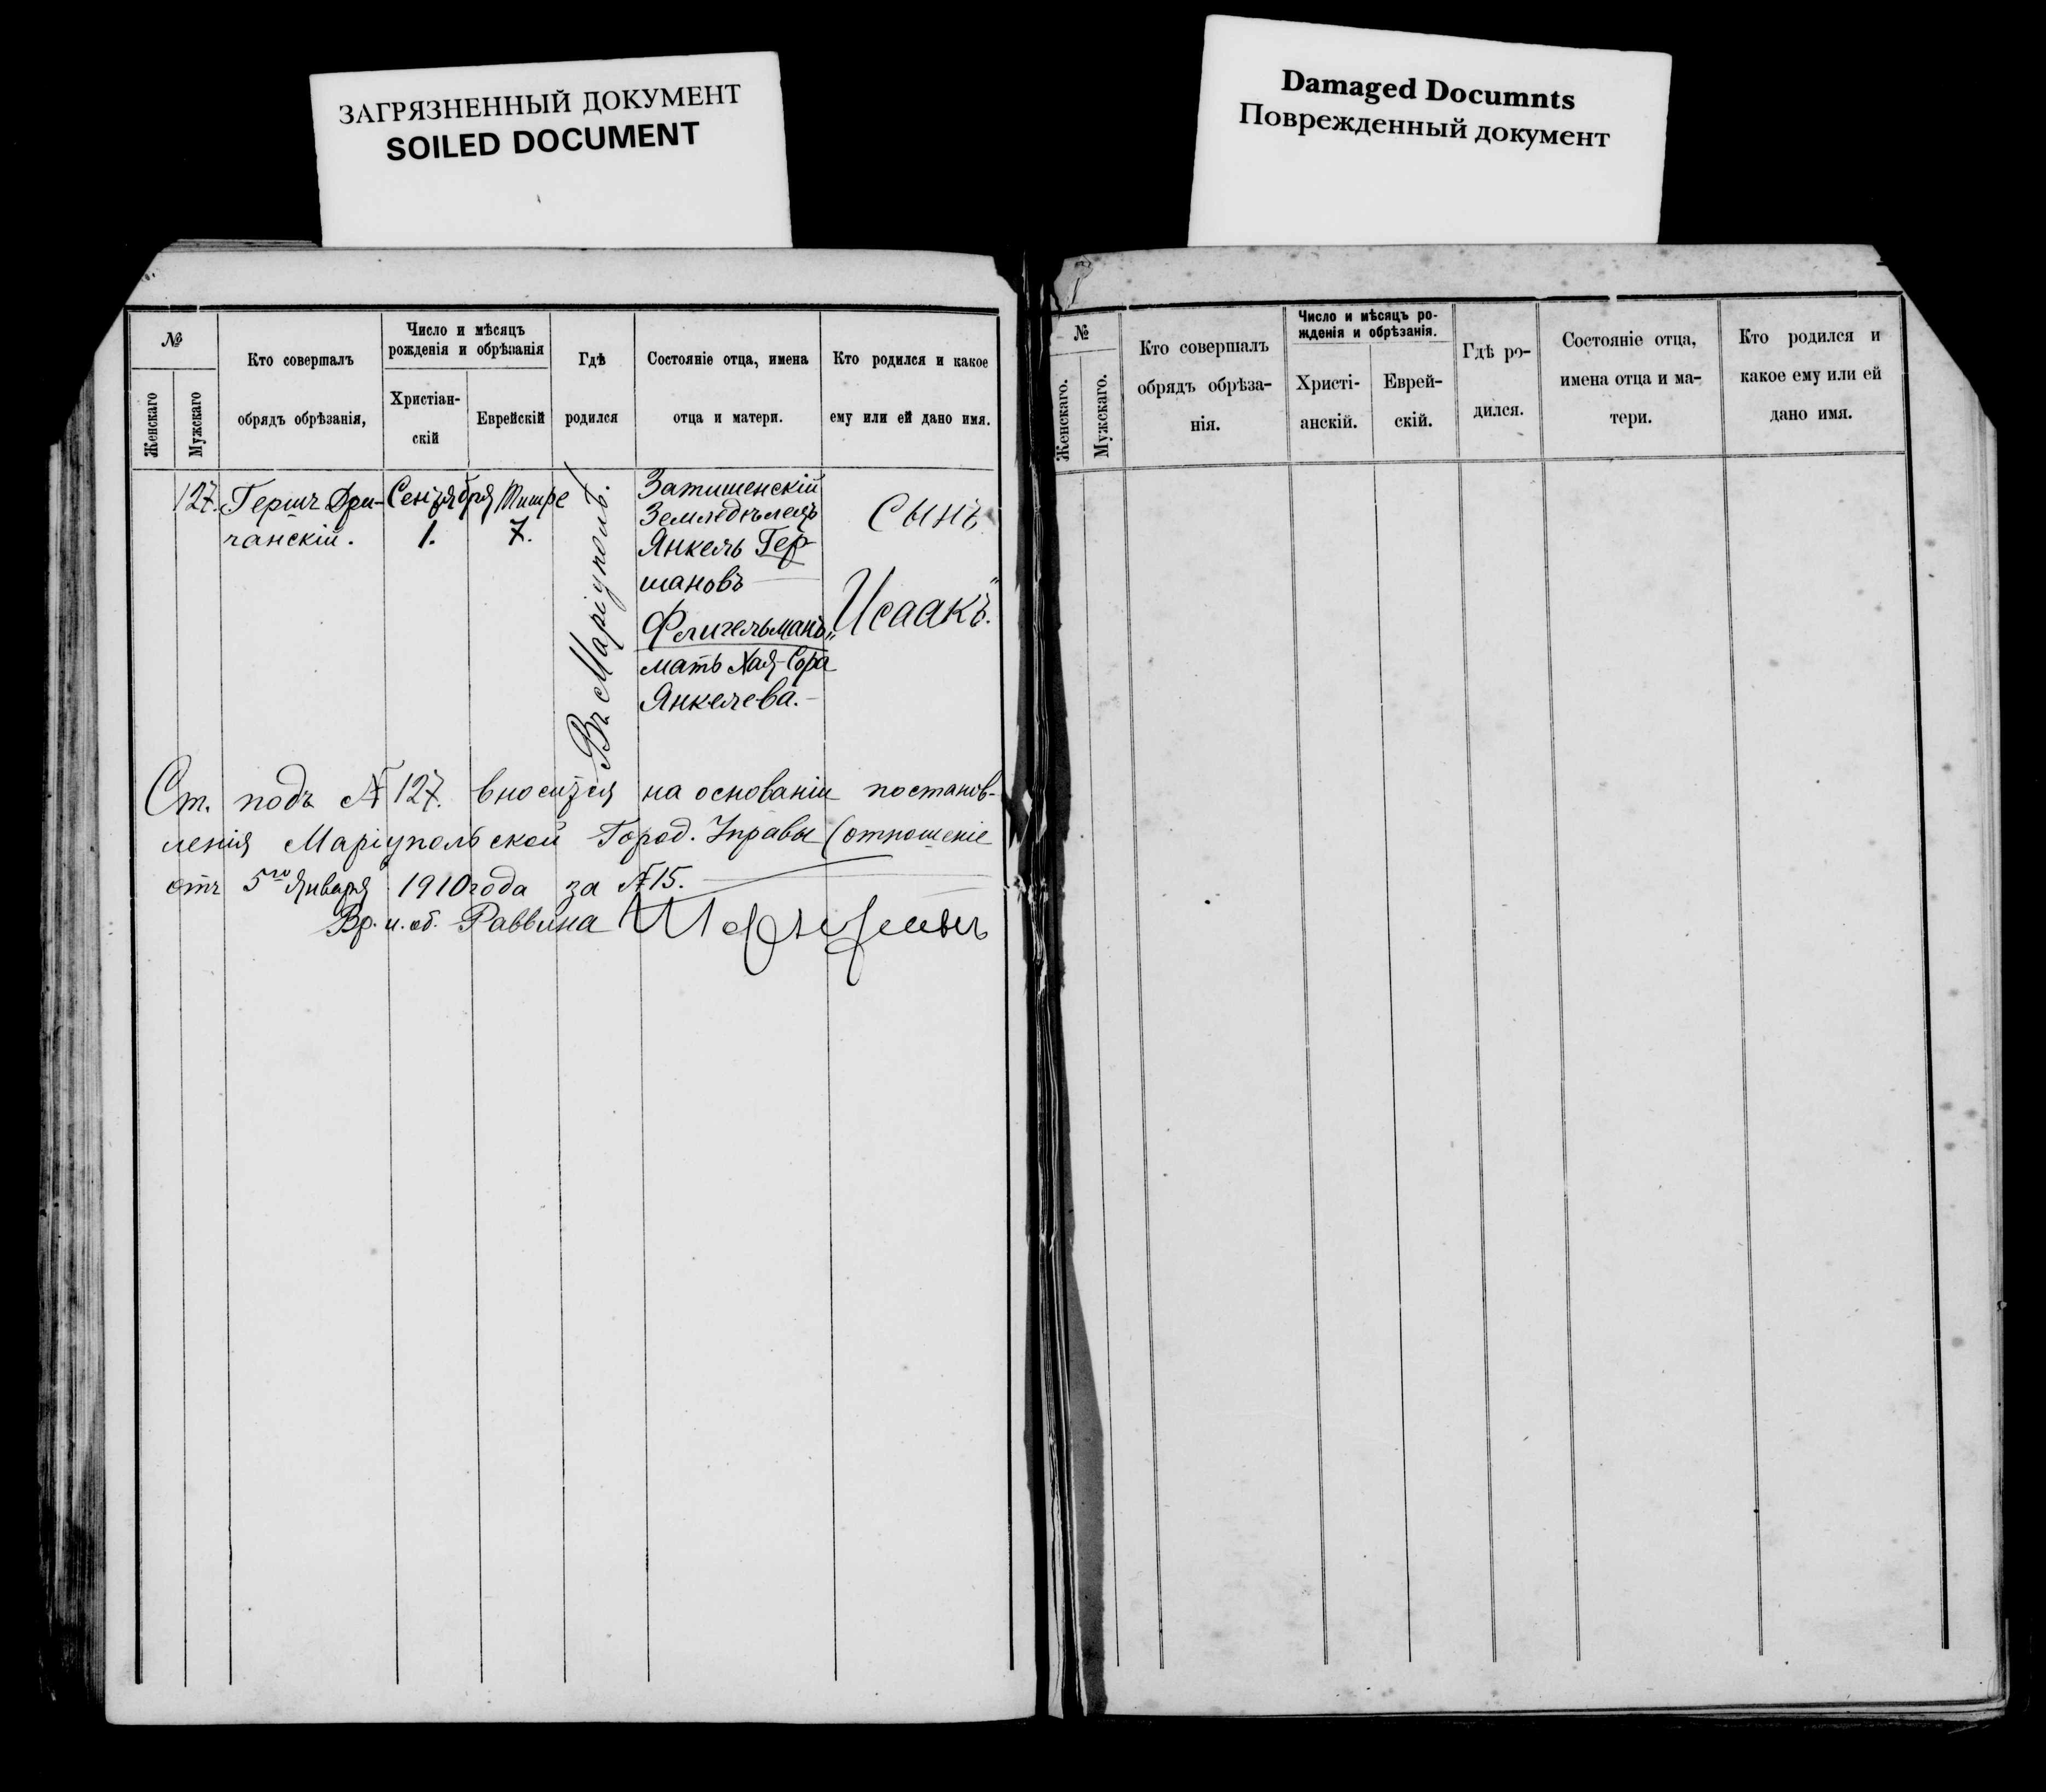 ЗАГРЯЗНЕННЫЙ ДОКУМЕНТ
SOILED DOCUMENT
Damaged Documnts
Поврежденный документ
№
Женскаго
Мужскаго
Кто совершалъ
обрядъ обрѣзанія,
Число и мѣсяцъ
рожденія и обрѣзанія
Христіан-
скій
Еврейскій
Гдѣ
родился
Состояніе отца, имена
отца и матери.
Кто родился и какое
ему или ей дано имя.
127.
Гершъ Дри-
чанскій.
Сентября
1.
Тишре
7.
Въ Маріуполѣ.
Затишенскій
Земледѣлецъ
Янкель Гер-
шановъ
Флигельманъ„
мать Хая-Сора
Янкелева.
Сынъ
Исаакъ".
Ст. подъ № 127. вносится на основаніи постанов-
ленія Маріупольской Город. Управы (отношеніе
отъ 5го Января 1910 года за №15.
Вр. и. об. Раввина
№
Женскаго.
Мужскаго.
Кто совершалъ
обрядъ обрѣза-
нія.
Число и мѣсяцъ ро-
жденія и обрѣзанія.
Христі-
анскій.
Еврей-
скій.
Гдѣ ро-
дился.
Состояніе отца,
имена отца и ма-
тери.
Кто родился и
какое ему или ей
дано имя.